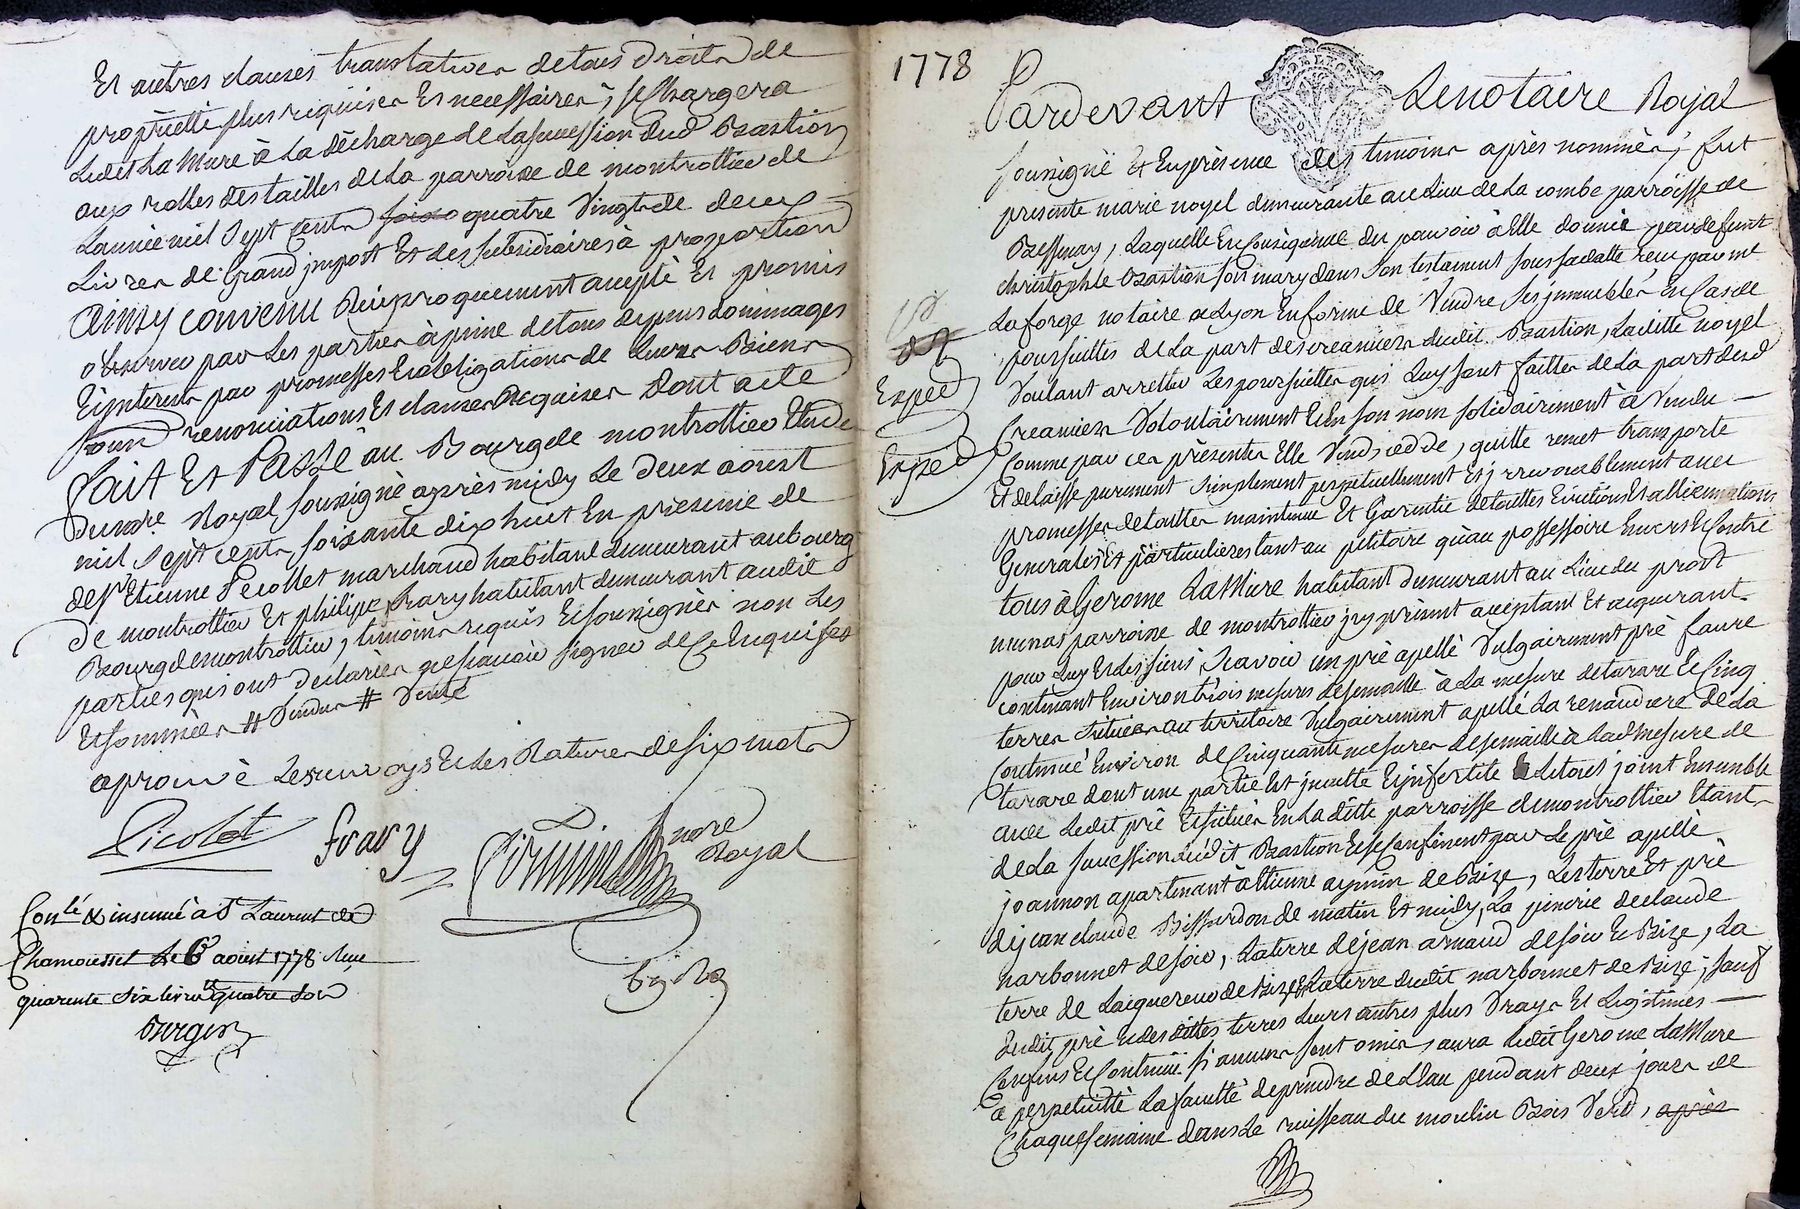 Et autres clauses translatives de tous droits de
propriette plus requises et necessaires, se Chargera
Ledit La Mure à La dècharge de La succession dud Bastion
aux rolles des tailles de La parroise de montrottier de
L'année mil Sept Cents soix quatre Vingts de deux
Livres de Grand jmpost Et des subsidiaires à proportion
Ainsy convenu Reciproquement accepté Et promis
observer par Les parties à peine de tous depens dommages
Et jnterests par promesses Et obligations de Leurs Biens
sous renonciations Et clauses Requises Dont acte
Fait Et Passè au Bourg de montrottier Etude
Du nore Royal soussignè après midy Le deux aoust
mil Sept cents soixante dix huit En presence de
de sr Etienne Pecollet marchand habitant demeurant au bourg
de montrottier Et philippe frary habitant demeurant audit
Bourg de montrottier, temoins requis Et soussignès non Les
parties qui ont declarèes ne scavoir signer de ce Enquises
Et sommèes # Vendu # Vente
aprouvè Les renvoys Et Les Ratures de six mots
Picolet frary nore Royal
Conlé & insinué à St Laurent de
Chamousset Le 6 aoust 1778 Reçu
quarente six livres quatre sols
1778
Pardevant Le notaire Royal
soussignè Et En prèsence des temoins après nommès, fut
presente marie noyel demeurante au Lieu de La combe parròisse de
Bessenay, Laquelle En Consèquence du pouvoir à Elle donnè par defunt
christophle Bastion son mary dans son testament sous sa datte reçu par me
Laforge notaire a Lyon En forme de Vendre ses jmmeubles En Cas de
poursuittes de La part des creanciers dudit Bastion, Laditte noyel
Voulant arretter Les poursuittes qui Luy sont faittes de La part desd
Expèd
Creanciers Volontairement Et En son nom solidairement à Vendu
Comme par ces prèsentes Elle Vend, cedde, quitte remet transporte
Expèd
Et delaisse purement simplement perpetuellement Et jrrevocablement avec
promesses de touttes maintenue Et Garantie de touttes Evictions Et alliennations
Generales Et pàrticulieres tant au petitoire qu'au possessoire Envers Et Contre
tous à Gerome La Mure habitant demeurant au Lieu du prost
munas parroise de montrottier jcy prèsent aceptant Et aquerant
pour Luy Et Les siens, Scavoir un prè apellè Vulgairement prè faure
contenant Environ trois mesures de semaille à La mesure de tarare Et Cinq
terres situèes au territoire Vulgairement apellé La renaudiere De La
Contenue Environ de Cinquante mesures de semaille à Lad mesure de
tarare dont une partie Est jnculte Et jnfertile Le tout joint Ensemble
avec Ledit prè Et situèes En La ditte parroisse de montrottier Etant
de La succession dudit Bastion Et se Confinent par Le prè apellè
joannon apartenant à Etienne aymin de Bize, Les terre Et prè
de jean claude Bissardon de matin Et midy, La pinerie de claude
narbonnet de soir, La terre de jean arnaud de soir Et Bize, La
terre de Laiguereur de Bize Et La terre dudit narbonnet de Bize; sauf
dudit prè Et desdittes terres Leurs autres plus Vrays Et Legitimes
Confins Et Contenue si aucuns sont omis, aura Ledit Gerome La Mure
a perpetuitè La facultè de prendre de L'Eau pendant deux jours de
Chaque semaine dans Le ruisseau du moulin Bois Verd, après